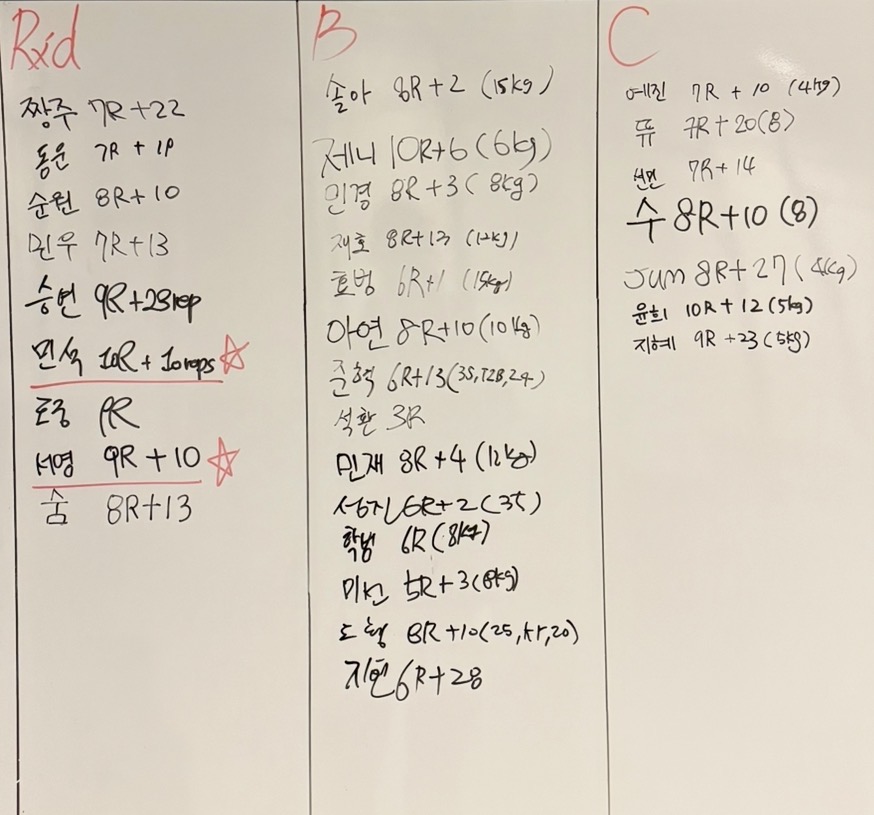 Rxd
짱주 7R+22
동운 7R + 19
순원 8R+10
민우 7R+13
승번 9R+23rep
민석 10R + 10reps ☆
9R
서영 9R + 10 ☆
숨 8R+13
B
솔아 8R+2 (15kg)
제니 10R+6 (6kg)
민경 8R+3 (8kg)
재호 8R+13 (12kg)
효범 6R+1 (15kg)
아연 8R+10 (10kg)
준혁 6R+13(35,T2B,24)
석환 3R
민재 8R+4 (12kg)
6R+2 (35)
학범 6R (8kg)
미선 5R+3(8kg)
도형 8R+10(25,kr,20)
지현 6R+28
C
예진 7R + 10 (4kg)
뜌 7R+20(8)
선민 7R+14
수 8R+10 (8)
Jum 8R+27 (4kg)
윤희 10R+12 (5kg)
지혜 9R +23 (5kg)